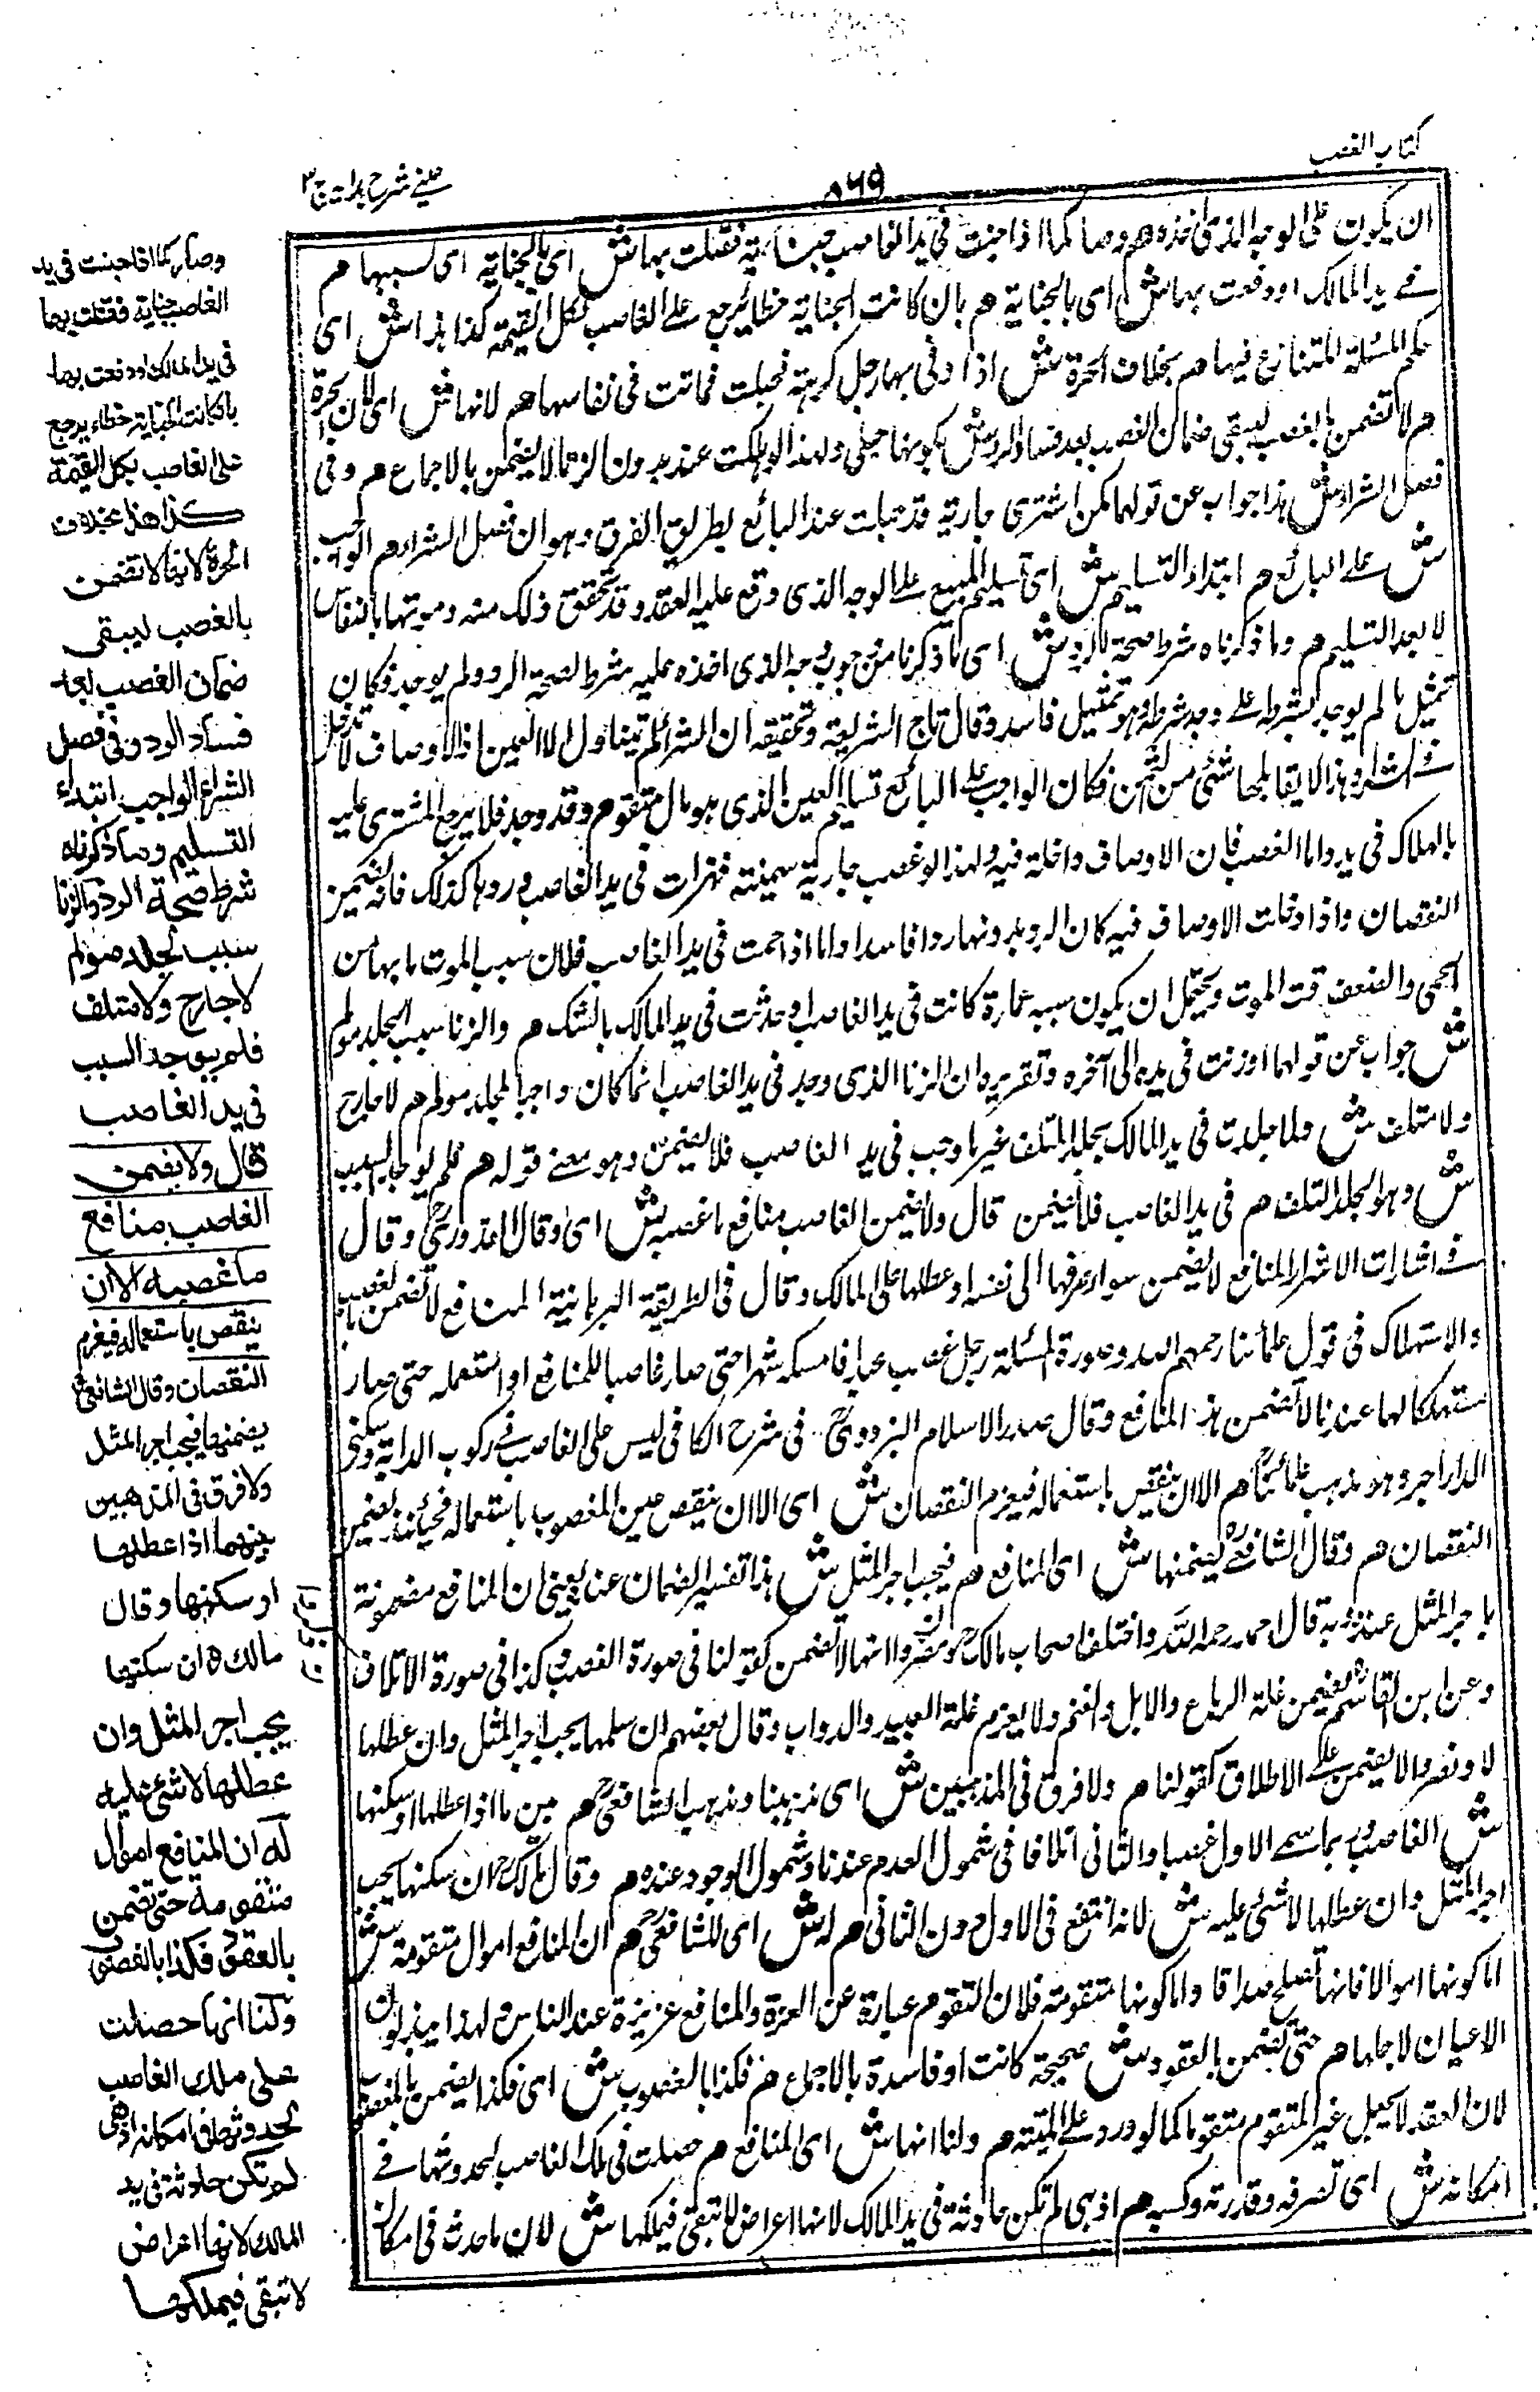 كتاب الغصب
٨٦٩
عيني شرح هداية ج٣
ان يكون على الوجه الذي اخذه هم وصار كما اذا جنت في يد الغاصب جناية فقتلت بها ش اي بالجناية اي بسببها هم
في يد المالك او دفعت بها ش اي بالجناية هم بان كانت الجناية خطأ يرجع على الغاصب بكل القيمة كذا هذا ش اي
حكم المسئلة المتنازع فيها هم بخلاف الحرة ش اذا زنى بها رجل كرهة فحبلت فماتت في نفاسها هم لانها ش اي لان الحرة
هم لا تضمن بالغصب ليبقى ضمان الغصب بعد فساد الرد ش بكونها حبلى ولهذا لو هلكت عنده بدون الزنا لا يضمن بالاجماع هم وفي
فصل الشراء ش هذا جواب عن قولهما كمن اشترى جارية قد حبلت عند البائع بطريق الفرق وهو ان فصل الشراء هم الواجب
ش على البائع هم ابتداء التسليم ش اي تسليم المبيع على الوجه الذي وقع عليه العقد وقد تحقق ذلك منه وموتها بالنفاس
لا يعد التسليم هم وما ذكرناه شرط صحة الرد ش اي ما ذكرنا من وجوب وجه الذي اخذه عليه شرط لصحة الرد ولم يوجد فكان
تمثيل ما لم يوجد بشرطه على وجد شرطه وهو تمثيل فاسد وقال تاج الشريعة وتحقيقه ان الشراء لم يتناول الا العين اذ الاوصاف لا تدخل
في الشراء ولهذا لا يقابلها شئ من الثمن فكان الواجب على البائع تسليم العين الذي هو مال متقوم وقد وجد فلا يرجع المشتري عليه
بالهلاك في يده واما الغصب فان الاوصاف داخلة فيه ولهذا لو غصب جارية سمينة فهزلت في يد الغاصب وردها كذلك فانه يضمن
النقصان واذا دخلت الاوصاف فيه كان الرد بدونها ردا فاسدا واما اذا حمت في يد الغاصب فلان سبب الموت ما بها من
الحمى والضعف وقت الموت ويحتمل ان يكون سببه حرارة كانت في يد الغاصب او حدثت في يد المالك بالشك هم والزنا سبب لجلد مولم
ش جواب عن قولهما او زنت في يده الى آخره وتقريره ان الزنا الذي وجد في يد الغاصب انما كان واجبا لجلد مولم هم لا جارح
ولا متلف ش ولما جلدت في يد المالك بجلد المتلف غير ما وجب في يد الغاصب فلا يضمن وهو معنى قوله هم فلم يوجد السبب
ش وهو الجلد المتلف هم في يد الغاصب فلا يضمن قال ولا يضمن الغاصب منافع ما غصبه ش اي وقال القدوري وقال
في اشارات الاسرار المنافع لا يضمن سواء صرفها الى نفسه او عطلها على المالك وقال في الطريقة البرهانية المنافع لا تضمن بالغصب
والاستهلاك في قول علمائنا رحمهم الله وصورة المسئلة رجل غصب عبدا فامسكه شهرا حتى صار غاصبا للمنافع او استعمله حتى صار
مستهلكا لها عندنا لا تضمن هذه المنافع وقال صدر الاسلام البزدوي في شرح الكافي ليس على الغاصب في ركوب الدابة وسكنى
الدار اجر وهو مذهب علمائنا هم الا ان ينقص باستعماله فيغرم النقصان ش اي الا ان ينقص عين المغصوب باستعماله فحينئذ يضمن
النقصان هم وقال الشافعي يضمنها ش اي المنافع هم فيجب اجر المثل ش هذا تفسير الضمان عنده يعني ان المنافع مضمونة
باجر المثل عنده وبه قال احمد رحمه الله واختلف اصحاب مالك انها لا تضمن كقولنا في صورة الغصب وكذا في صورة الاتلاف
وعن ابن القاسم يضمن غلة الرباع والابل والغنم ولا يغرم غلة العبيد والدواب وقال بعضهم ان سلمها يجب اجر المثل وان عطلها
لا يضمن على الاطلاق كقولنا هم ولا فرق في المذهبين ش اي مذهبنا ومذهب الشافعي هم بين ما اذا عطلها او سكنها
ش الغاصب ويسمى الاول غصبا والثاني اتلافا في شمول العدم عندنا وشمول الوجود عنده هم وقال مالك ان سكنها يجب
اجر المثل وان عطلها لا شئ عليه ش لانه انتفع في الاول دون الثاني هم له ش اي للشافعي هم ان المنافع اموال متقومة ش
اما كونها اموالا فانها تصلح صداقا واما كونها متقومة فلان التقوم عبارة عن العزة والمنافع عزيزة عند الناس ولهذا يبذلون
الاعيان لاجلها هم حتى تضمن بالعقود ش صحيحة كانت او فاسدة بالاجماع هم فكذا بالغصوب ش اي فكذا يضمن بالغصب
لان العقد لا يجعل غير المتقوم متقوما كما لو ورد على الميتة هم ولنا انها ش اي المنافع هم حصلت في ملك الغاصب لحدوثها في
امكانه ش اي تصرفه وقدرته وكسبه هم اذ هي لم تكن حادثة في يد المالك لانها اعراض لا تبقى فيملكها ش لان ما حدث في امكان
وصار كما اذا جنت في يد
الغاصب جناية فقتلت بها
في يد المالك او دفعت بها
بان كانت الجناية خطاء يرجع
على الغاصب بكل القيمة
كذا هذا بخلاف
الحرة لانها لا تضمن
بالغصب ليبقى
ضمان الغصب بعد
فساد الرد وفي فصل
الشراء الواجب ابتداء
التسليم وما ذكرناه
شرط صحة الرد والزنا
سبب لجلد مولم
لا جارح ولا متلف
فلم يوجد السبب
في يد الغاصب
قال ولا يضمن
الغاصب منافع
ما غصبه الا ان
ينقص باستعماله فيغرم
النقصان وقال الشافعي
يضمنها فيجب اجر المثل
ولا فرق في المذهبين
بينهما اذا عطلها
او سكنها وقال
مالك ان سكنها
يجب اجر المثل وان
عطلها لا شئ عليه
له ان المنافع اموال
متقومة حتى تضمن
بالعقود فكذا بالغصوب
ولنا انها حصلت
على ملك الغاصب
لحدوثها في امكانه اذ هي
لم تكن حادثة في يد
المالك لانها اعراض
لا تبقى فيملكها